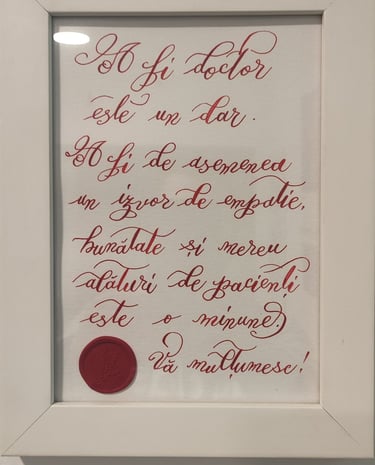 A fi doctor
este un dar.
A fi de asemenea
un izvor de empatie,
bunătate și mereu
alături de pacienți
este o minune.
Vă mulțumesc!